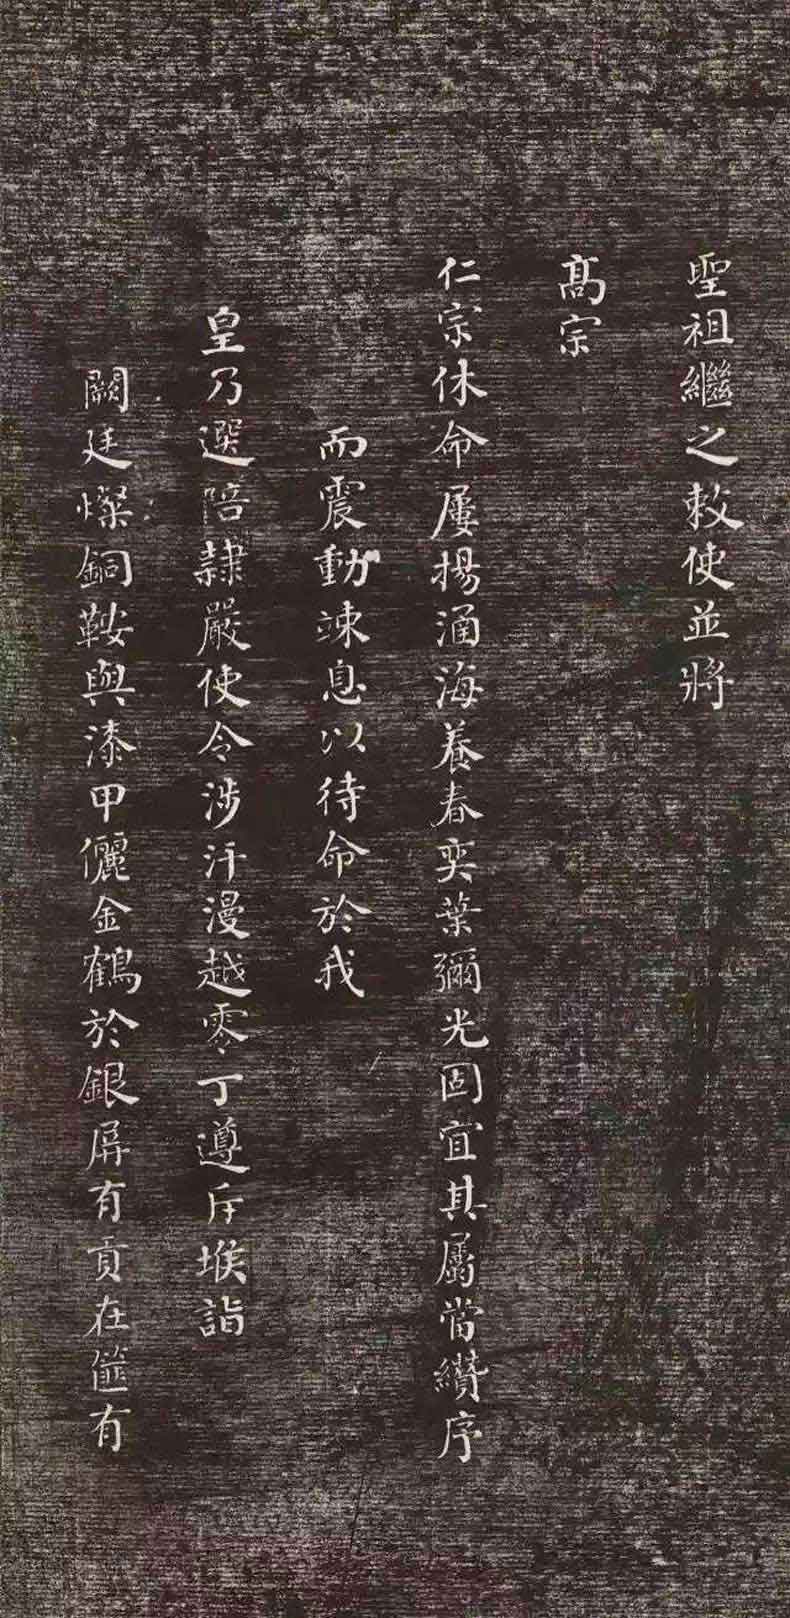 聖祖繼之敕使並將
髙宗
仁宗休命屢揚涵海養春奕葉彌光固宜其屬當纘序
而震動竦息以待命於我
皇乃選陪隷嚴使令涉汗漫越零丁遵斥堠詣
闕廷燦銅鞍與漆甲儷金鶴於銀屏有貢在篚有